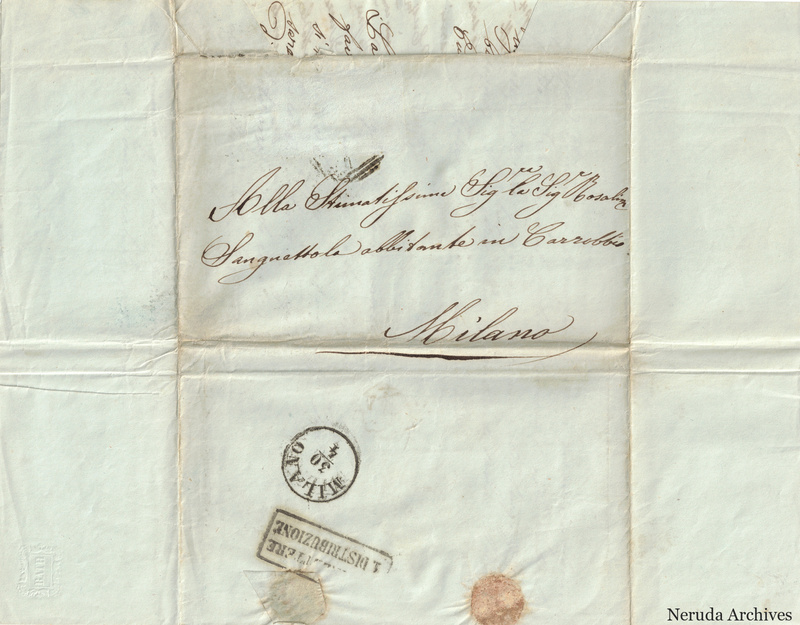 Alla Stimatissima Sig.ra la Sig.ra Rosalin
Sanquettola abbitante in Carrobbio
Milano
MILANO
30
4
LETTERE
1. DISTRIBUZIONE
Neruda Archives